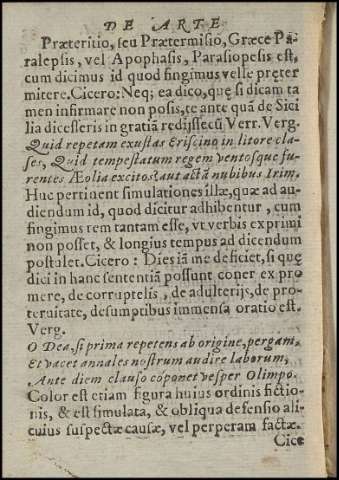 DE ARTE
Præteritio, seu Prætermisio, Græce Pa-
ralepsis, vel Apophasis, Parasiopesis est,
cum dicimus id quod fingimus velle pręter
mitere. Cicero: Neq; ea dico, quę si dicam ta
men infirmare non posis, te ante quā de Sici
lia dicesseris in gratiā redijssecū Verr. Verg.
Quid repetam exustas Eriscino in litore clas-
ses, Quid tempestatum regem ventosque fu-
rentes Æolia excitos? aut actā nubibus Irim.
Huc pertinent simulationes illæ, quæ ad au-
diendum id, quod dicitur adhibentur, cum
fingimus rem tantam esse, vt verbis exprimi
non posset, & longius tempus ad dicendum
postulet. Cicero: Dies iā me deficiet, si quę
dici in hanc sententiā possunt coner ex pro
mere, de corruptelis, de adulterijs, de pro-
teruitate, de sumptibus immensa oratio est.
Verg.
O Dea, si prima repetens ab origine, pergam,
Et vacet annales nostrum audire laborum,
Ante diem clauso cōponet vesper Olimpo.
Color est etiam figura huius ordinis fictio-
nis, & est simulata, & obliqua defensio ali
cuius suspectæ causæ, vel perperam factæ.
Cice